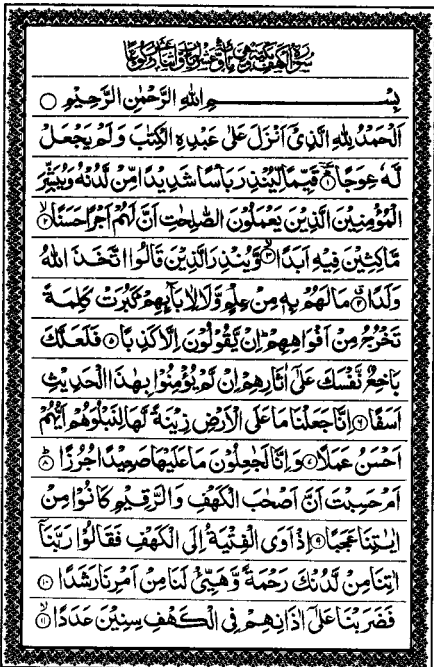 سُوْرَةُ الْكَهْفِ مَكِّيَّةٌ
بِسْمِ اللهِ الرَّحْمٰنِ الرَّحِيْمِ ○
اَلْحَمْدُ لِلّٰهِ الَّذِيْٓ اَنْزَلَ عَلٰى عَبْدِهِ الْكِتٰبَ وَلَمْ يَجْعَلْ
لَّهٗ عِوَجًا ۝۱ قَيِّمًا لِّيُنْذِرَ بَاْسًا شَدِيْدًا مِّنْ لَّدُنْهُ وَيُبَشِّرَ
الْمُؤْمِنِيْنَ الَّذِيْنَ يَعْمَلُوْنَ الصّٰلِحٰتِ اَنَّ لَهُمْ اَجْرًا حَسَنًا ۝۲
مَّاكِثِيْنَ فِيْهِ اَبَدًا ۝۳ وَّيُنْذِرَ الَّذِيْنَ قَالُوا اتَّخَذَ اللهُ
وَلَدًا ۝۴ مَا لَهُمْ بِهٖ مِنْ عِلْمٍ وَّلَا لِاٰبَآئِهِمْ كَبُرَتْ كَلِمَةً
تَخْرُجُ مِنْ اَفْوَاهِهِمْ اِنْ يَّقُوْلُوْنَ اِلَّا كَذِبًا ۝۵ فَلَعَلَّكَ
بَاخِعٌ نَّفْسَكَ عَلٰٓى اٰثَارِهِمْ اِنْ لَّمْ يُؤْمِنُوْا بِهٰذَا الْحَدِيْثِ
اَسَفًا ۝۶ اِنَّا جَعَلْنَا مَا عَلَى الْاَرْضِ زِيْنَةً لَّهَا لِنَبْلُوَهُمْ اَيُّهُمْ
اَحْسَنُ عَمَلًا ۝۷ وَاِنَّا لَجٰعِلُوْنَ مَا عَلَيْهَا صَعِيْدًا جُرُزًا ۝۸
اَمْ حَسِبْتَ اَنَّ اَصْحٰبَ الْكَهْفِ وَالرَّقِيْمِ كَانُوْا مِنْ
اٰيٰتِنَا عَجَبًا ۝۹ اِذْ اَوَى الْفِتْيَةُ اِلَى الْكَهْفِ فَقَالُوْا رَبَّنَآ
اٰتِنَا مِنْ لَّدُنْكَ رَحْمَةً وَّهَيِّئْ لَنَا مِنْ اَمْرِنَا رَشَدًا ۝۱۰
فَضَرَبْنَا عَلٰٓى اٰذَانِهِمْ فِى الْكَهْفِ سِنِيْنَ عَدَدًا ۝۱۱